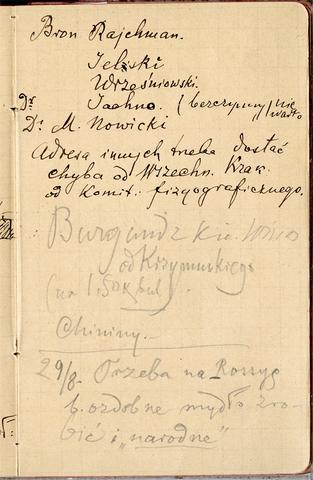 Bron Rajchman.
Jelski
Wrześniowski.
Dr Jachno. (bezczynny) nie warto
Dr. M. Nowicki
Adresa innych trzeba dostać
chyba od Wszechn. Krak.
od Komit. fizyograficznego.
Burgundzkie wino
od Krzymuskiego
(na 1.50
Chininy.
29/8. Trzeba na Rossyę
b. ozdobne mydło zro-
bić i „narodne"